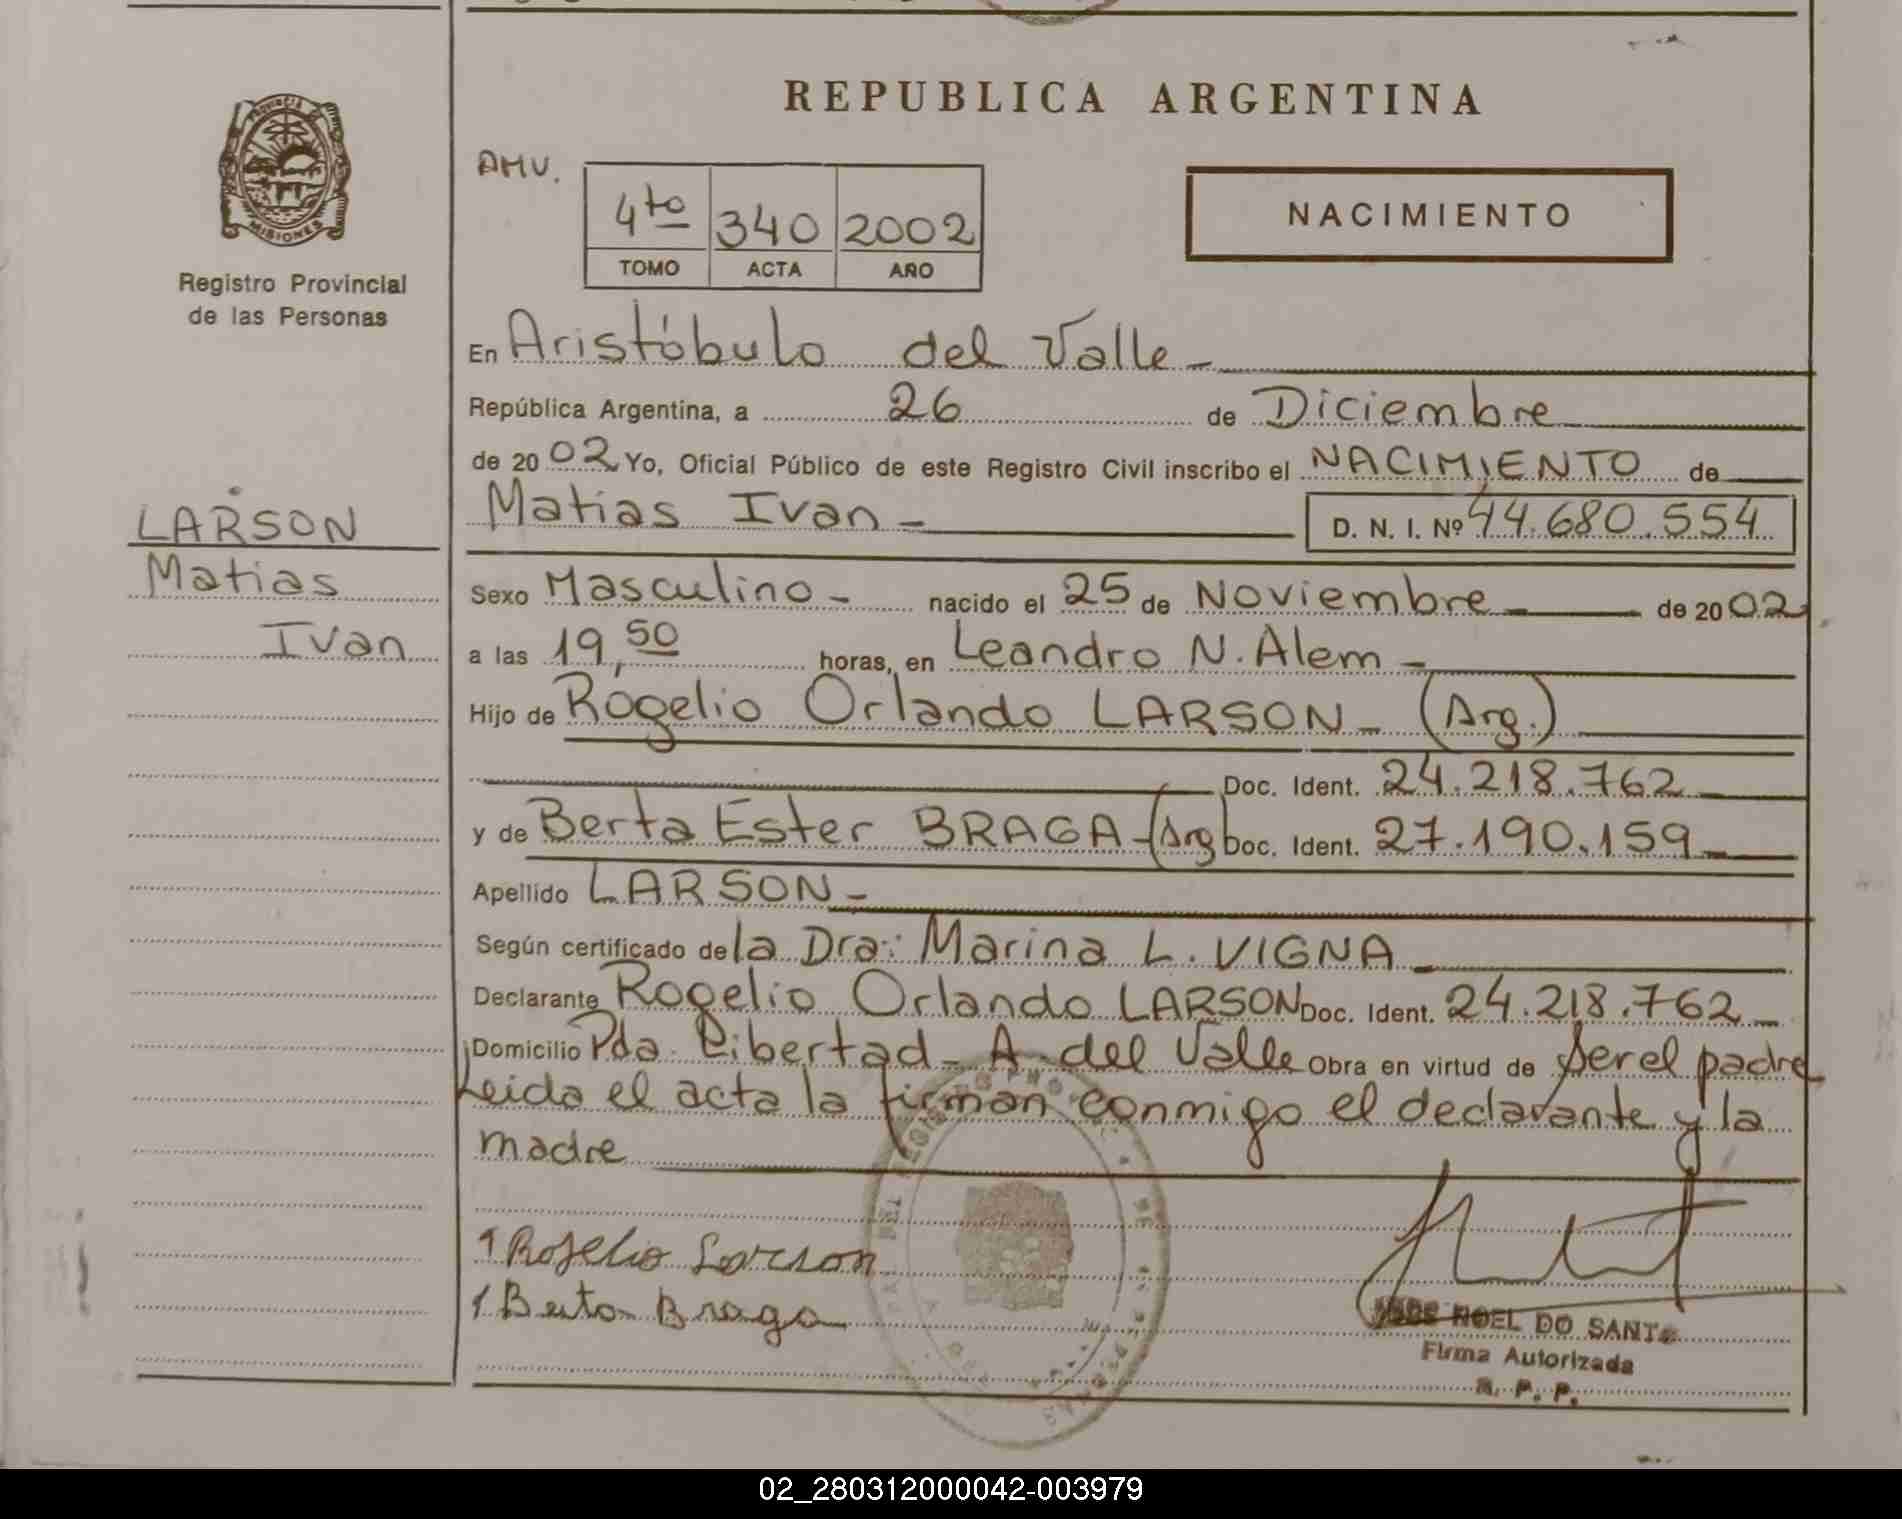 REPUBLICA ARGENTINA
PROVINCIA
MISIONES
Registro Provincial
de las Personas
AMV.
4to 340 2002
TOMO ACTA AÑO
NACIMIENTO
En Aristóbulo del Valle
República Argentina, a 26 de Diciembre
de 2002 Yo, Oficial Público de este Registro Civil inscribo el NACIMIENTO de
Matias Ivan - D. N. I. Nº 44.680.554
LARSON
Matias
Ivan
Sexo Masculino - nacido el 25 de Noviembre de 2002
a las 19,50 horas, en Leandro N. Alem -
Hijo de Rogelio Orlando LARSON - (Arg.)
Doc. Ident. 24.218.762
y de Berta Ester BRAGA - (Arg) Doc. Ident. 27.190.159
Apellido LARSON -
Según certificado de la Dra: Marina L. VIGNA
Declarante Rogelio Orlando LARSON Doc. Ident. 24.218.762
Domicilio Pda. Libertad - A. del Valle Obra en virtud de Ser el padre
Leida el acta la firman conmigo el declarante y la
madre
Rogelio Larson
Berta Braga
NOEL DO SANTO
Firma Autorizada
R. P. P.
02_280312000042-003979